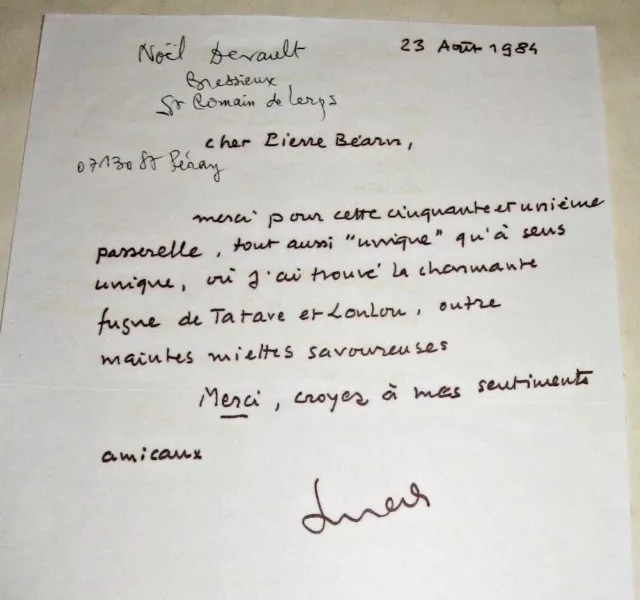 Noël Devault
23 Août 1984
Bressieux
St Romain de Lerps
07130 St Péray
cher Pierre Béarn,
merci pour cette cinquante et unième
passerelle, tout aussi "unique" qu'à sens
unique, où j'ai trouvé la charmante
fugue de Tatave et Loulou, outre
maintes miettes savoureuses
Merci, croyez à mes sentiments
amicaux